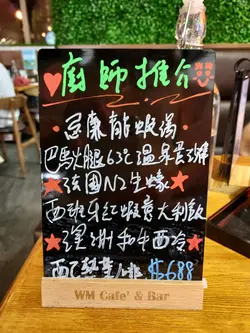 廚師推介
忌廉龍蝦湯
巴馬火腿63°C溫泉蛋沙律
法國N2生蠔
西班牙紅蝦意大利飯
澳洲和牛西冷
咖啡 $688
WM Cafe' & Bar